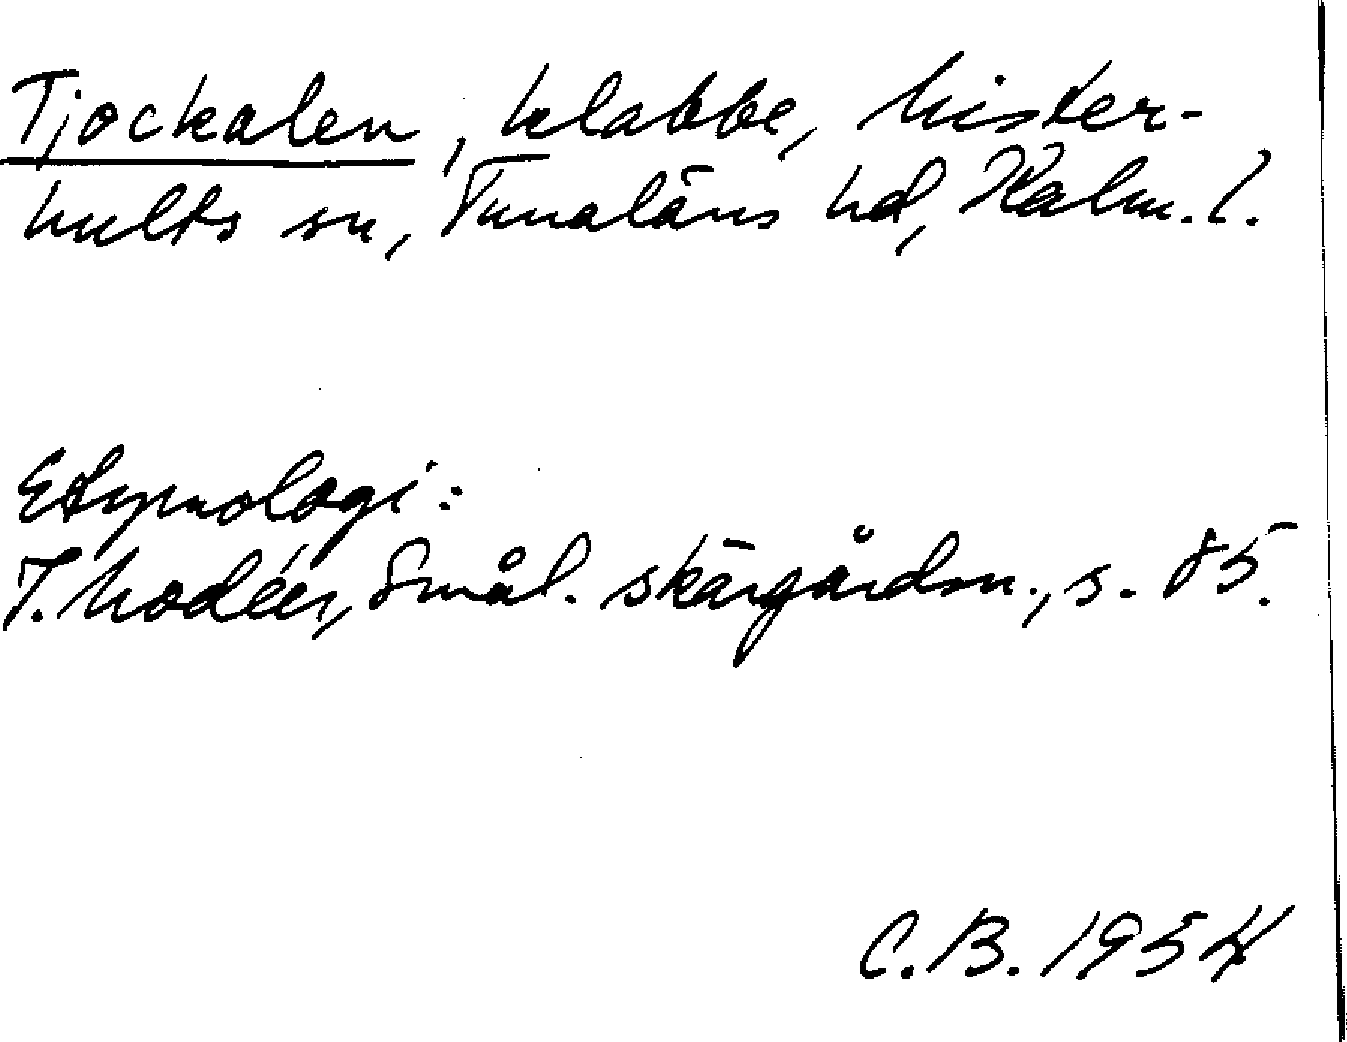 Tjockalen, klabbe, Mister-
hults sn, Tunaläns hd, Kalm. l.
Etymologi:
I. Modéer, Smål. skärgårdsn., s. 85.
C.B. 1954